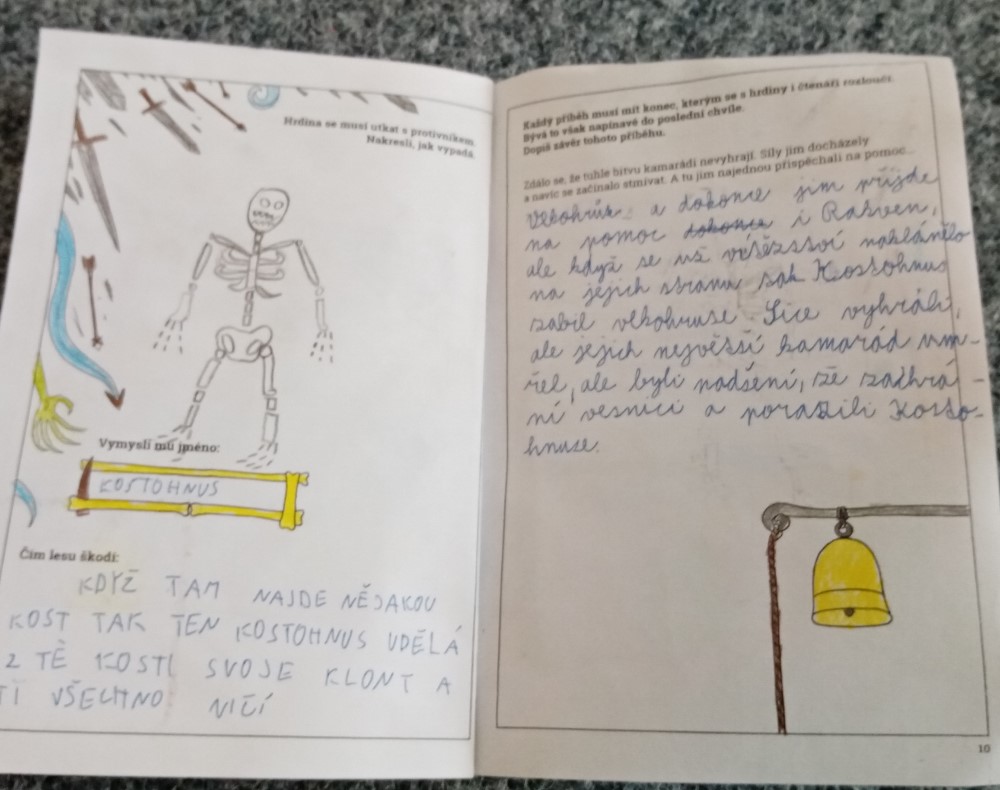 Hrdina se musí utkat s protivníkem.
Nakresli, jak vypadá.
Vymysli mu jméno:
KOSTOHNUS
Čím lesu škodí:
KDYŽ TAM NAJDE NĚJAKOU
KOST TAK TEN KOSTOHNUS UDĚLÁ
Z TĚ KOSTI SVOJE KLONY A
TÍ VŠECHNO NIČÍ
Každý příběh musí mít konec, kterým se s hrdiny i čtenáři rozloučí.
Bývá to však napínavé do poslední chvíle.
Dopiš závěr tohoto příběhu.
Zdálo se, že tuhle bitvu kamarádi nevyhrají. Síly jim docházely
a navíc se začínalo stmívat. A tu jim najednou přispěchali na pomoc...
a dokonce jim přijde
na pomoc dokonce i Rasven,
ale když se už vítězství naklánělo
na jejich stranu tak Kostohnus
zabil vlkohruse. Sice vyhráli,
ale jejich největší kamarád um-
řel, ale byli nadšení, že zachrá-
ní vesnici a porazili Kosto-
hnuse.
10